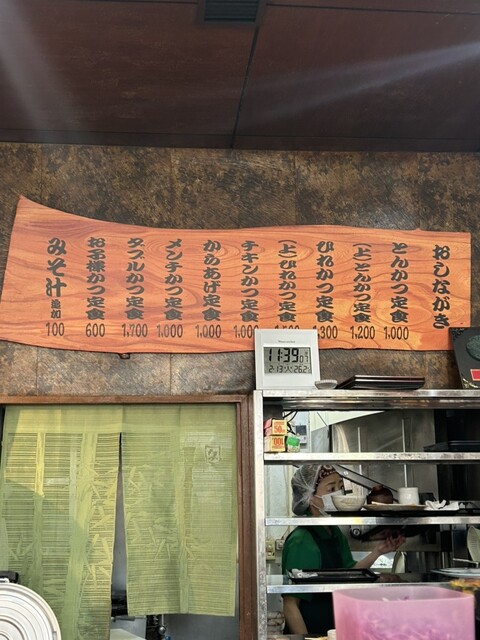 おしながき
とんかつ定食 1,000
(上)とんかつ定食 1,200
ひれかつ定食 1,300
(上)ひれかつ定食 1,500
チキンかつ定食 1,00
からあげ定食 1,000
メンチかつ定食 1,000
ダブルかつ定食 1,700
お子様かつ定食 600
みそ汁 追加 100
11:39
2-13 火 26.2